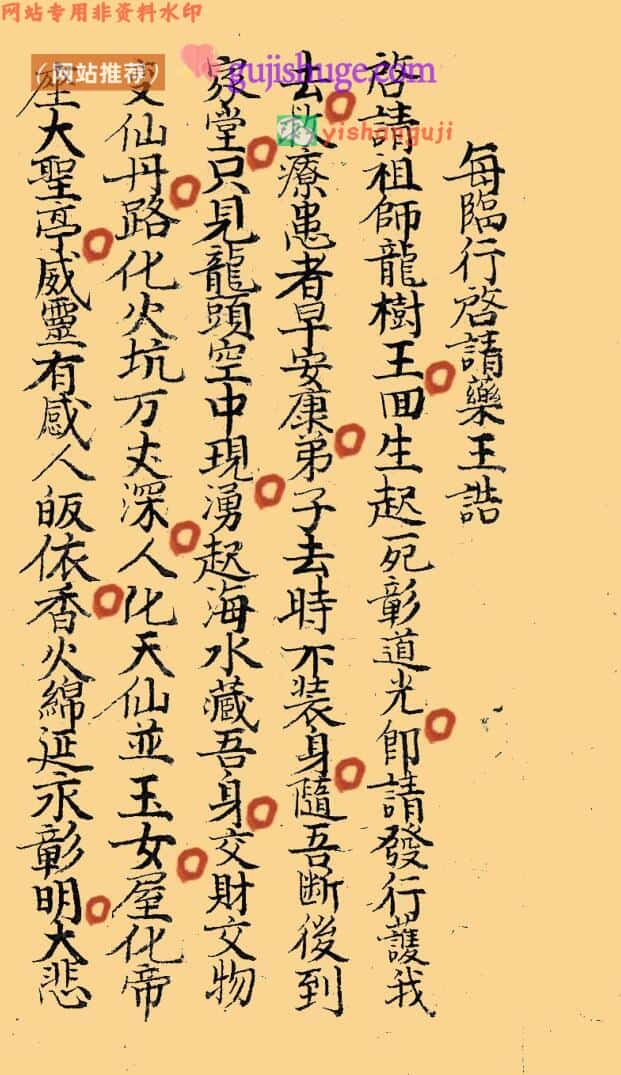 网站专用非资料水印
（网站推荐）
gujishuge.com
yishanguji
每臨行啓請藥王誥
啓請祖師龍樹王回生起死彰道光即請發行護我
去療患者早安康弟子去時不裝身隨吾断後到
家堂只見龍頭空中現湧起海水藏吾身交財交物
変仙丹路化火坑万丈深人化天仙並玉女屋化帝
座大聖亭威靈有感人皈依香火綿延永彰明大悲